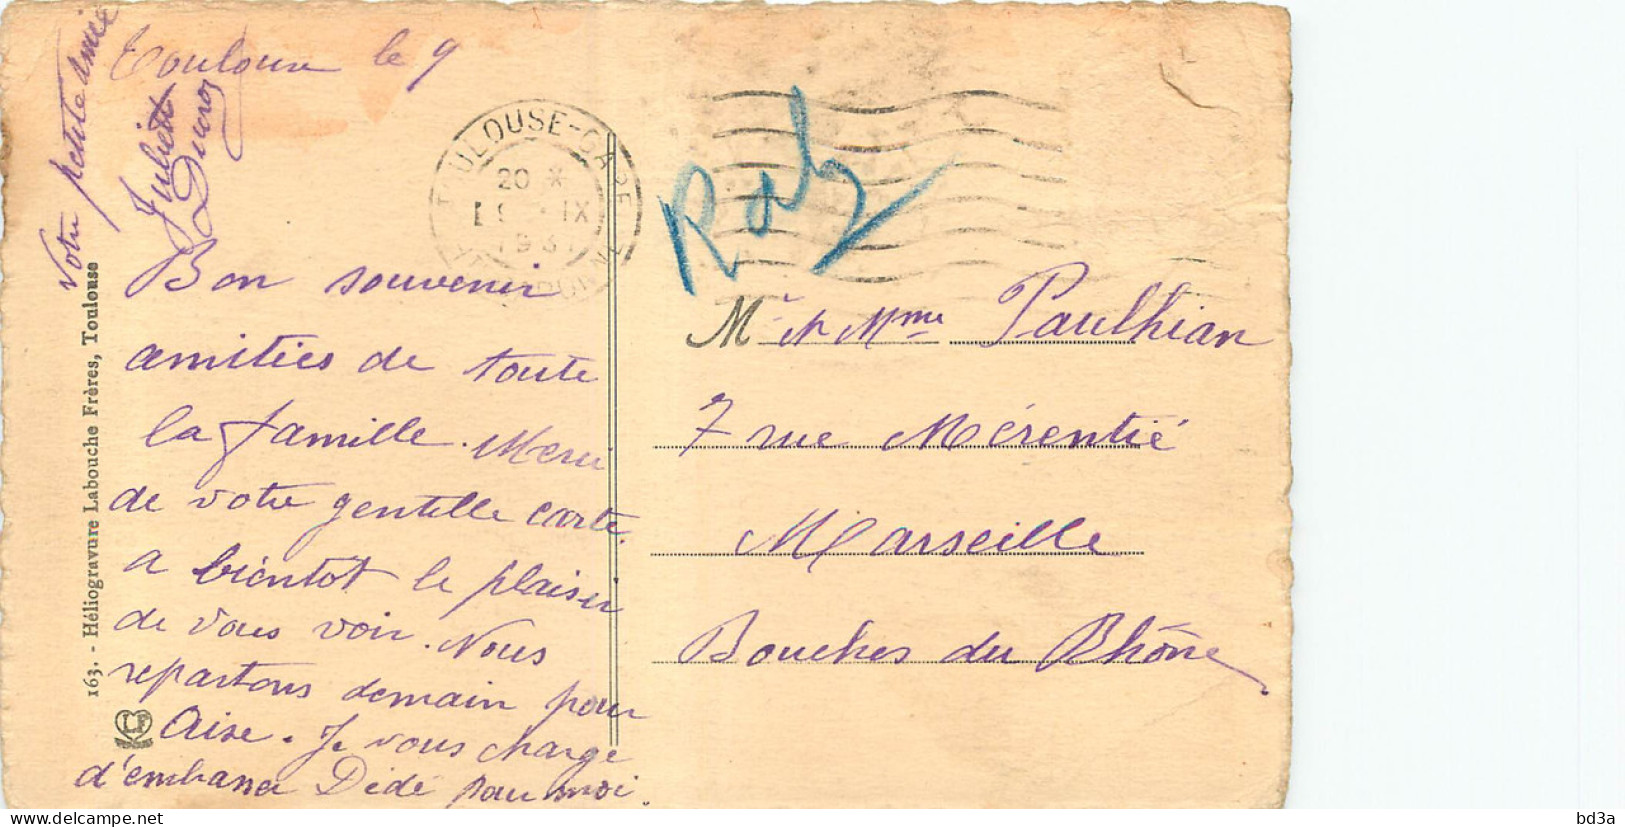 Toulouse le 9
Bon souvenir
amitiées de toute
la famille. Merci
de votre gentille carte.
a bientot le plaisir
de vous voir. Nous
repartons demain pour
. Je vous charge
d'embrasser Dédé pour moi.
Votre petite amie
Juliette
TOULOUSE-GARE
20 *
9 - IX
163. - Héliogravure Labouche Frères, Toulouse
LF
M r & Mme Paulhian
7 rue Mérentié
Marseille
Bouches du Rhône
bd3a